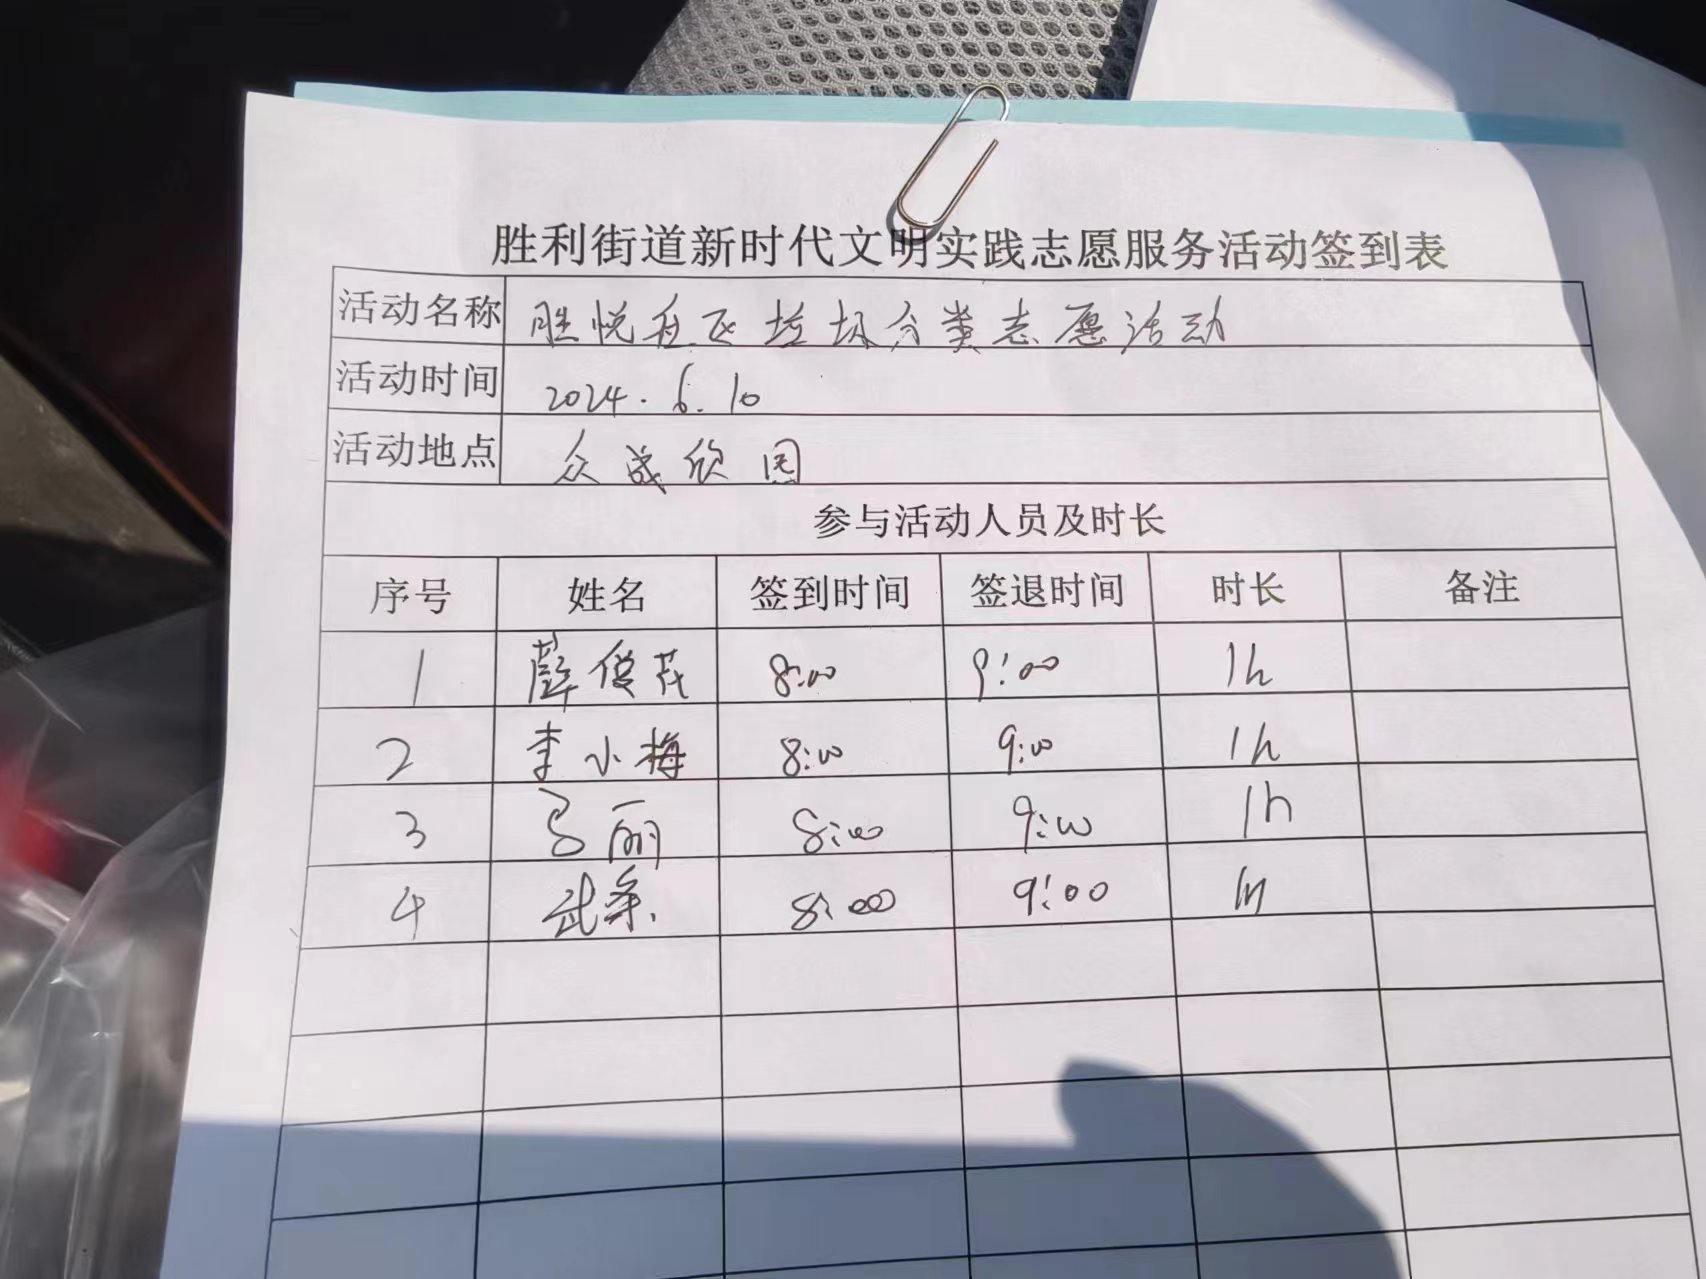 胜利街道新时代文明实践志愿服务活动签到表
活动名称 胜悦社区垃圾分类志愿活动
活动时间 2024.6.10
活动地点 众成欣园
参与活动人员及时长
序号 姓名 签到时间 签退时间 时长 备注
1 薛俊茂 8:00 9:00 1h
2 李小梅 8:00 9:00 1h
3 吕丽 8:00 9:00 1h
4 武 8:00 9:00 1h